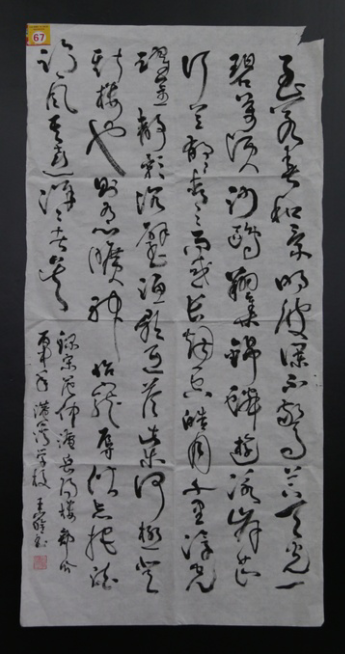 67
至若春和景明波澜不惊上下天光一
碧万顷沙鸥翔集锦鳞游泳岸芷
汀兰郁郁青青而或长烟一空皓月千里浮光
跃金静影沉璧渔歌互答此乐何极登
斯楼也则有心旷神怡宠辱偕忘把酒
临风其喜洋洋者矣
录宋范仲淹岳阳楼